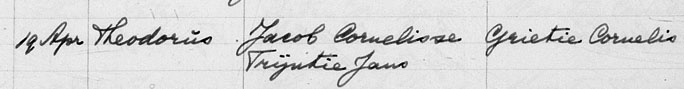 19 Apr Theodorŭs Jacob Cornelisse Grietie Cornelis
Trijntie Jans